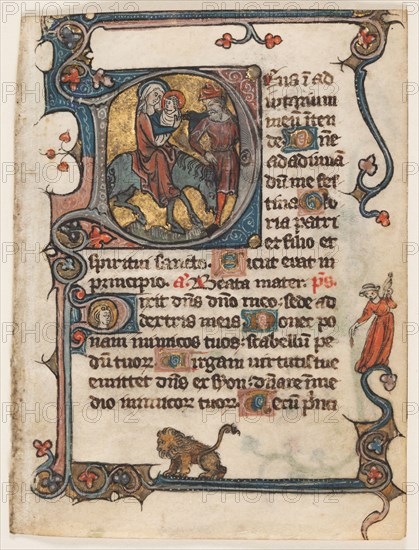 Deus in ad
iutorium
meum inten
de. Domine
ad adiuuan
dum me fes
tina. Glo
ria patri
et filio et
spiritui sancto. Sicut erat in
principio. a. Beata mater. ps.
Dixit dns dno meo: sede ad
dextris meis. Donec po
nam inimicos tuos: scabellum pe
dum tuor. Virgam uirtutis tue
emittet dns ex syon: dnare in me
dio inimicor tuor. Tecum prin